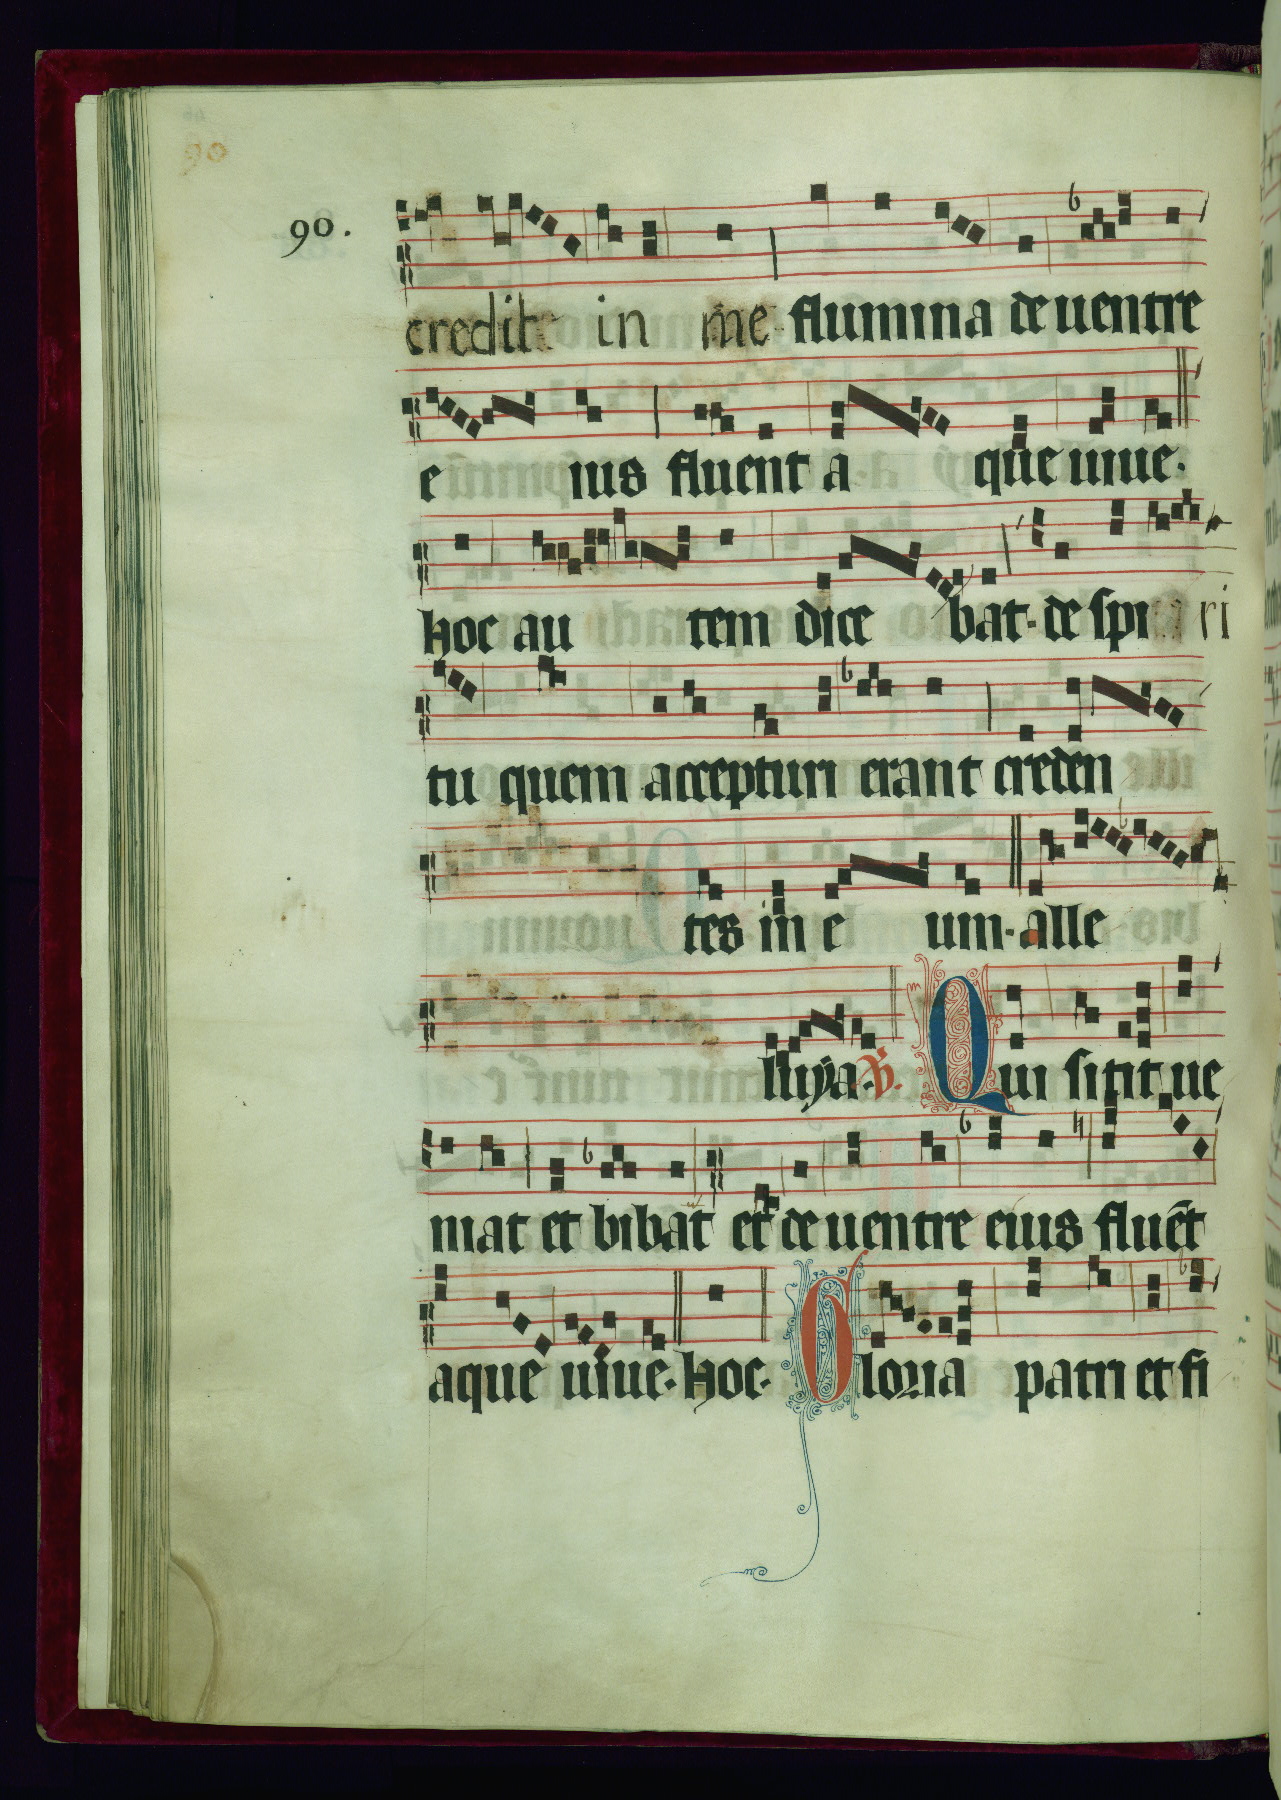 90
90.
credit in me flumina de uentre
e ius fluent a que uiue.
hoc au tem dice bat. de spi ri
tu quem accepturi erant creden
tes in e um. alle
luya. ℣. Qui sitit ue
niat et bibat et de uentre eius fluēt
aque uiue. hoc. Gloria patri et fi